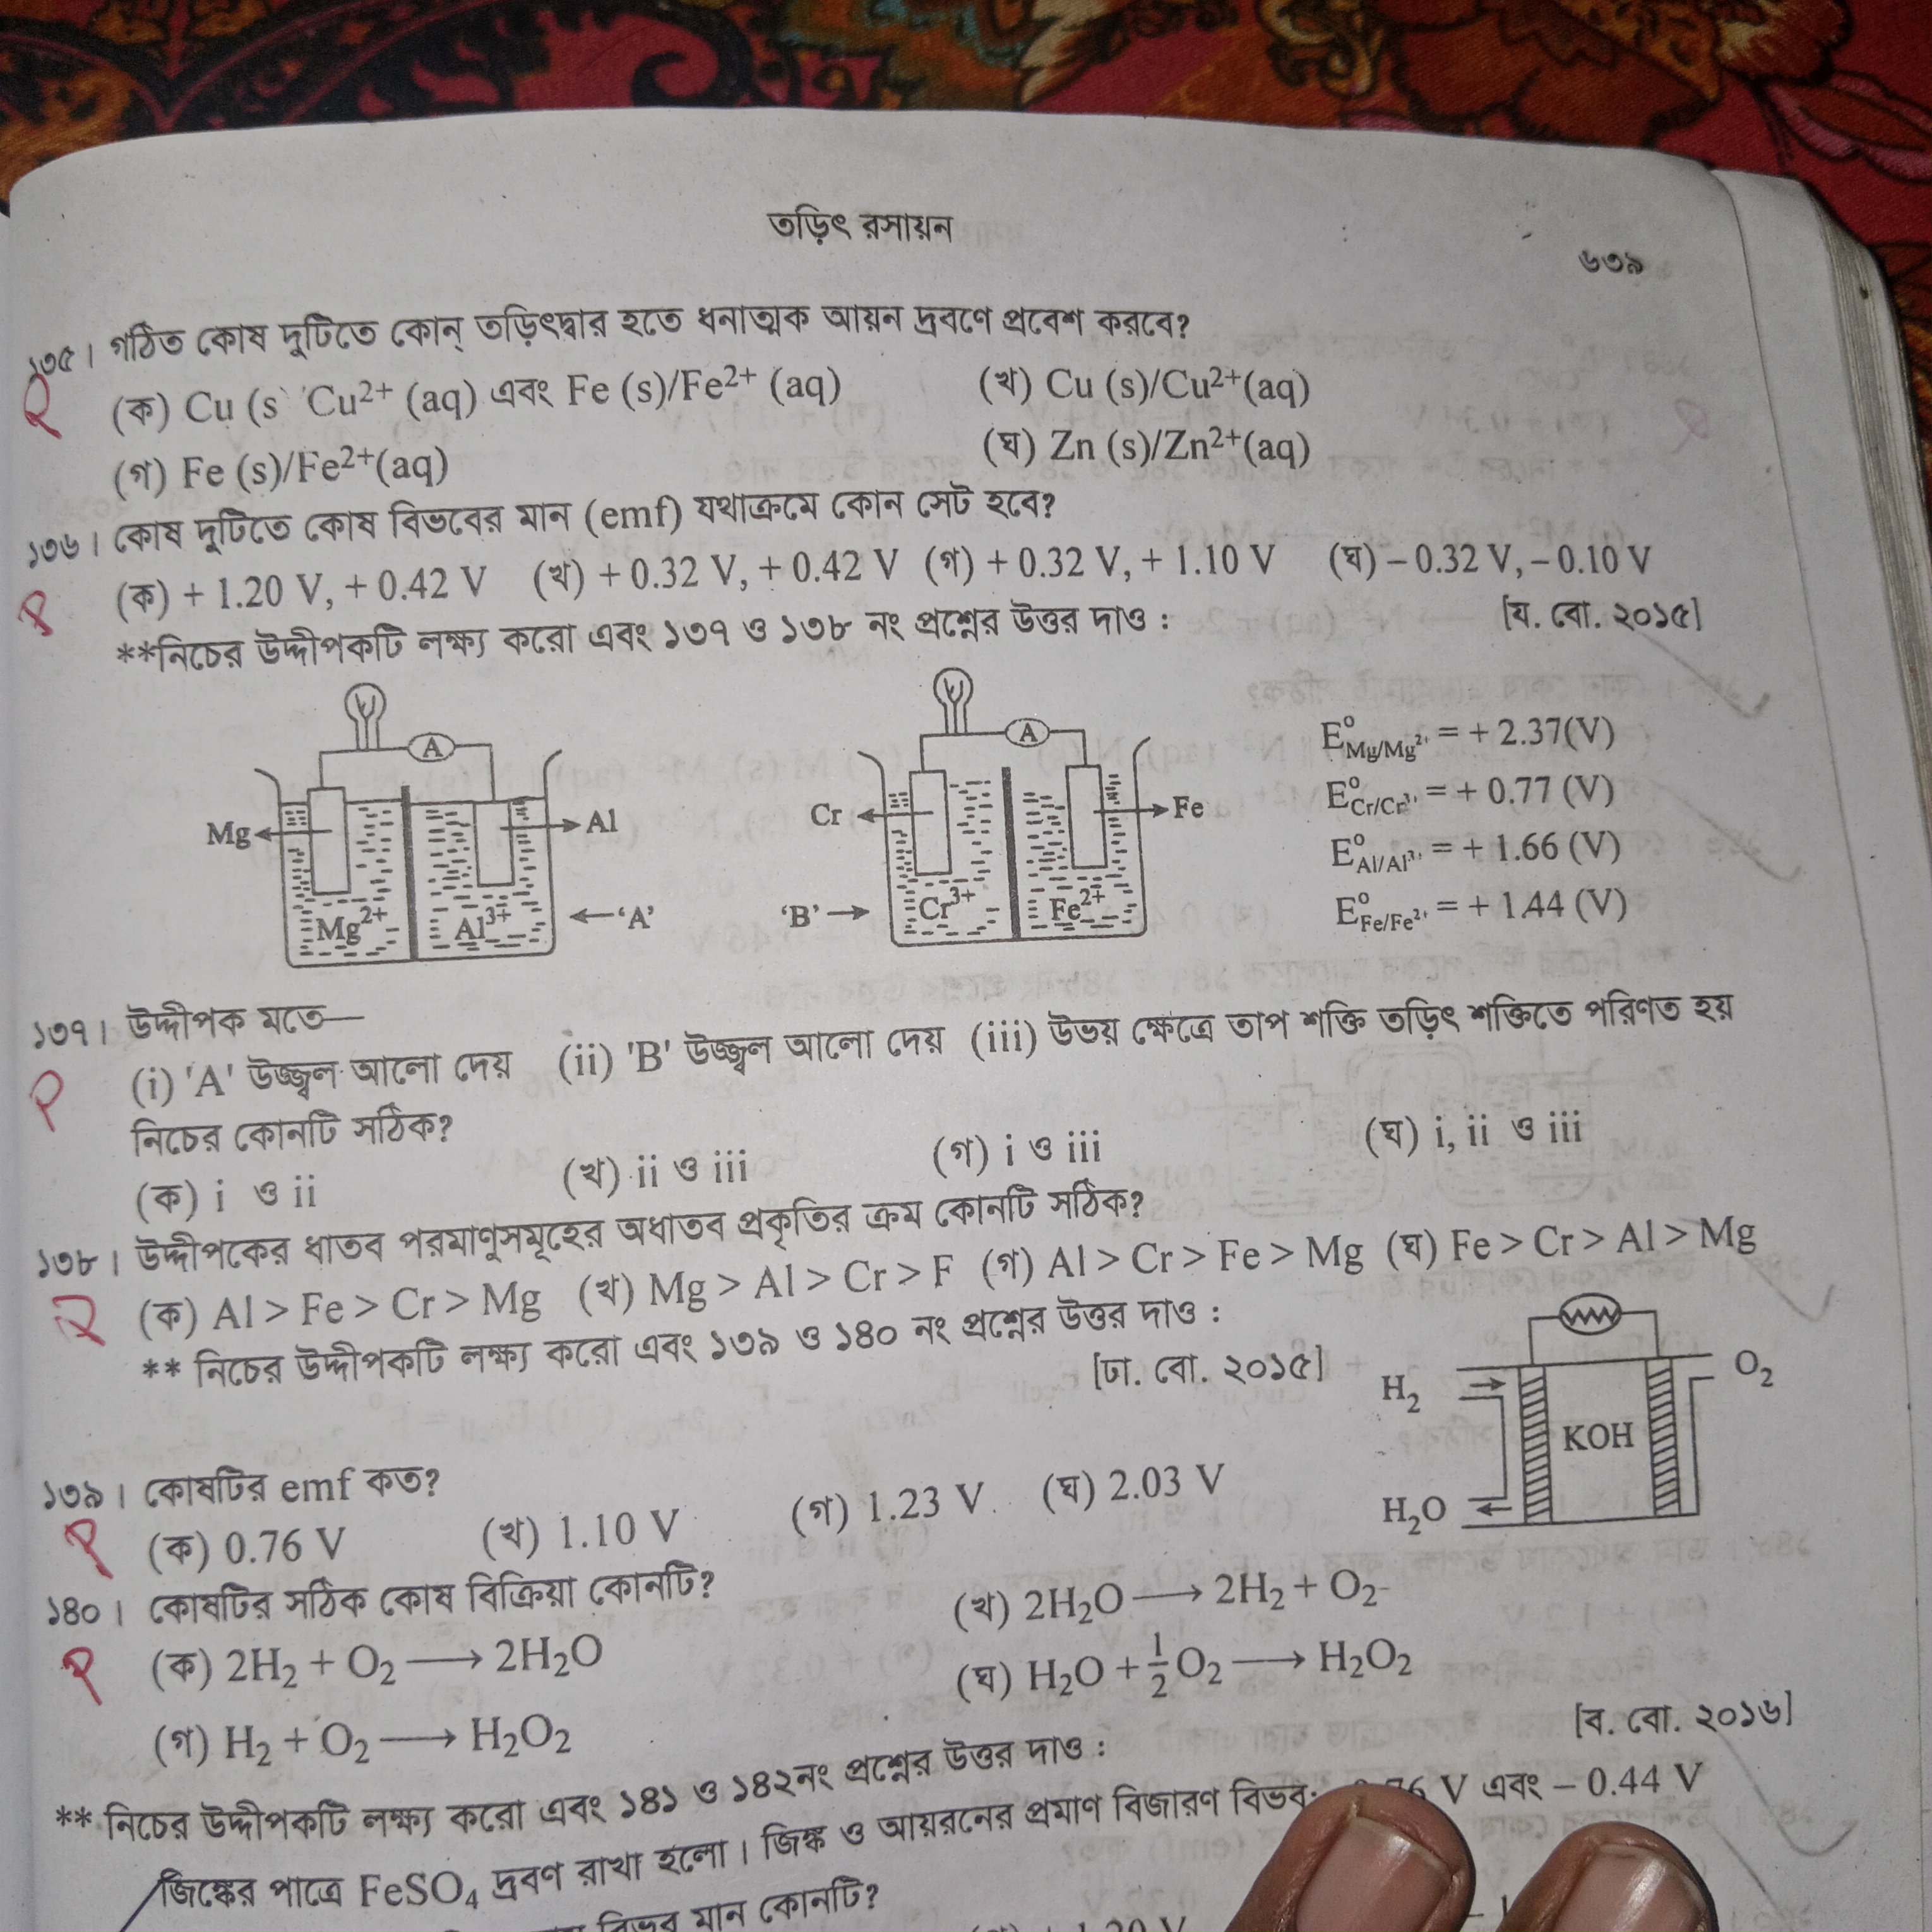 তড়িৎ রসায়ন
৬৩৯
১৩৫। গঠিত কোষ দুটিতে কোন্ তড়িৎদ্বার হতে ধনাত্মক আয়ন দ্রবণে প্রবেশ করবে?
(ক) Cu (s Cu²⁺ (aq) এবং Fe (s)/Fe²⁺ (aq) (খ) Cu (s)/Cu²⁺(aq)
(গ) Fe (s)/Fe²⁺(aq) (ঘ) Zn (s)/Zn²⁺(aq)
১৩৬। কোষ দুটিতে কোষ বিভবের মান (emf) যথাক্রমে কোন সেট হবে?
(ক) + 1.20 V, + 0.42 V (খ) + 0.32 V, + 0.42 V (গ) + 0.32 V, + 1.10 V (ঘ) – 0.32 V, – 0.10 V
**নিচের উদ্দীপকটি লক্ষ্য করো এবং ১৩৭ ও ১৩৮ নং প্রশ্নের উত্তর দাও : [য. বো. ২০১৫]
A
Mg
Al
Mg²⁺
Al³⁺
'A'
A
Cr
Fe
'B'
Cr³⁺
Fe²⁺
E°Mg/Mg²⁺ = + 2.37(V)
E°Cr/Cr³⁺ = + 0.77 (V)
E°Al/Al³⁺ = + 1.66 (V)
E°Fe/Fe²⁺ = + 1.44 (V)
১৩৭। উদ্দীপক মতে—
(i) 'A' উজ্জ্বল আলো দেয় (ii) 'B' উজ্জ্বল আলো দেয় (iii) উভয় ক্ষেত্রে তাপ শক্তি তড়িৎ শক্তিতে পরিণত হয়
নিচের কোনটি সঠিক?
(ক) i ও ii (খ) ii ও iii (গ) i ও iii (ঘ) i, ii ও iii
১৩৮। উদ্দীপকের ধাতব পরমাণুসমূহের অধাতব প্রকৃতির ক্রম কোনটি সঠিক?
(ক) Al > Fe > Cr > Mg (খ) Mg > Al > Cr > F (গ) Al > Cr > Fe > Mg (ঘ) Fe > Cr > Al > Mg
** নিচের উদ্দীপকটি লক্ষ্য করো এবং ১৩৯ ও ১৪০ নং প্রশ্নের উত্তর দাও :
[ঢা. বো. ২০১৫]
H₂
O₂
KOH
H₂O
১৩৯। কোষটির emf কত?
(ক) 0.76 V (খ) 1.10 V (গ) 1.23 V (ঘ) 2.03 V
১৪০। কোষটির সঠিক কোষ বিক্রিয়া কোনটি?
(ক) 2H₂ + O₂ ⟶ 2H₂O (খ) 2H₂O ⟶ 2H₂ + O₂
(গ) H₂ + O₂ ⟶ H₂O₂ (ঘ) H₂O + ½O₂ ⟶ H₂O₂
** নিচের উদ্দীপকটি লক্ষ্য করো এবং ১৪১ ও ১৪২নং প্রশ্নের উত্তর দাও : [ব. বো. ২০১৬]
জিঙ্কের পাত্রে FeSO₄ দ্রবণ রাখা হলো। জিঙ্ক ও আয়রনের প্রমাণ বিজারণ বিভব: V এবং – 0.44 V
বিভব মান কোনটি?